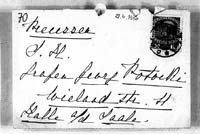 70
Preussen
S. H.
Grafen Georg Potocki
Wieland Str. 4
Halle a/d Saale.